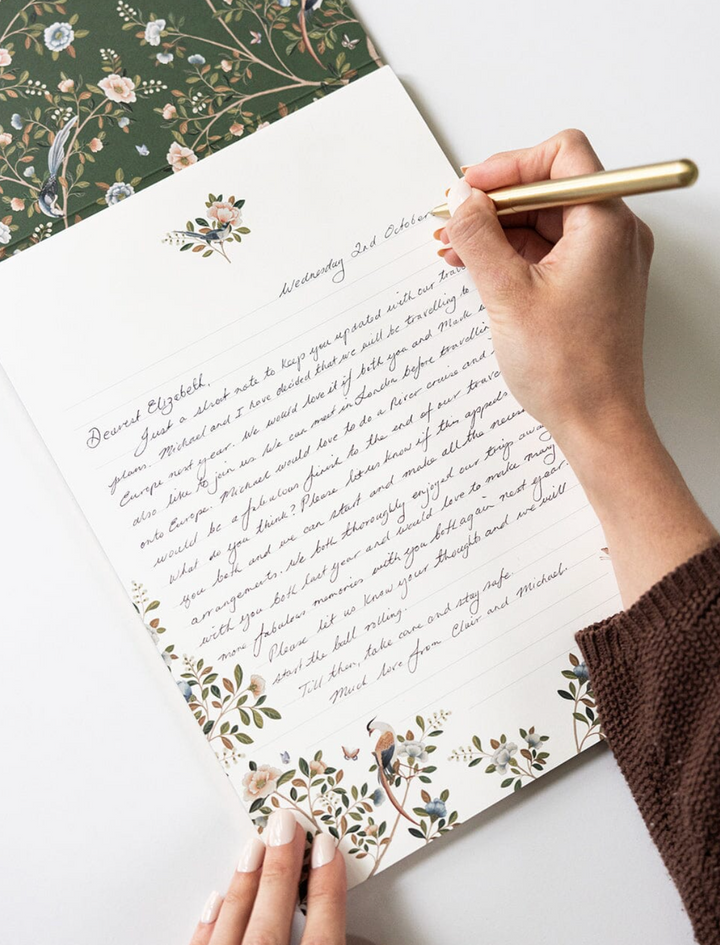 Wednesday 2nd October
Dearest Elizabeth,
Just a short note to keep you updated with our
plans. Michael and I have decided that we will be travelling to
Europe next year. We would love it if both you and Mark
also like to join us. We can meet in London before
onto Europe. Michael would love to do a River cruise and
would be a fabulous finish to the end of our
what do you think? Please let us know if this appeals
you both and we can start and make all the
arrangements. We both thoroughly enjoyed our trip
with you both last year and would love to make many
more fabulous memories with you both again next year.
Please let us know your thoughts and we will
start the ball rolling.
Till then, take care and stay safe.
Much love from Clair and Michael.